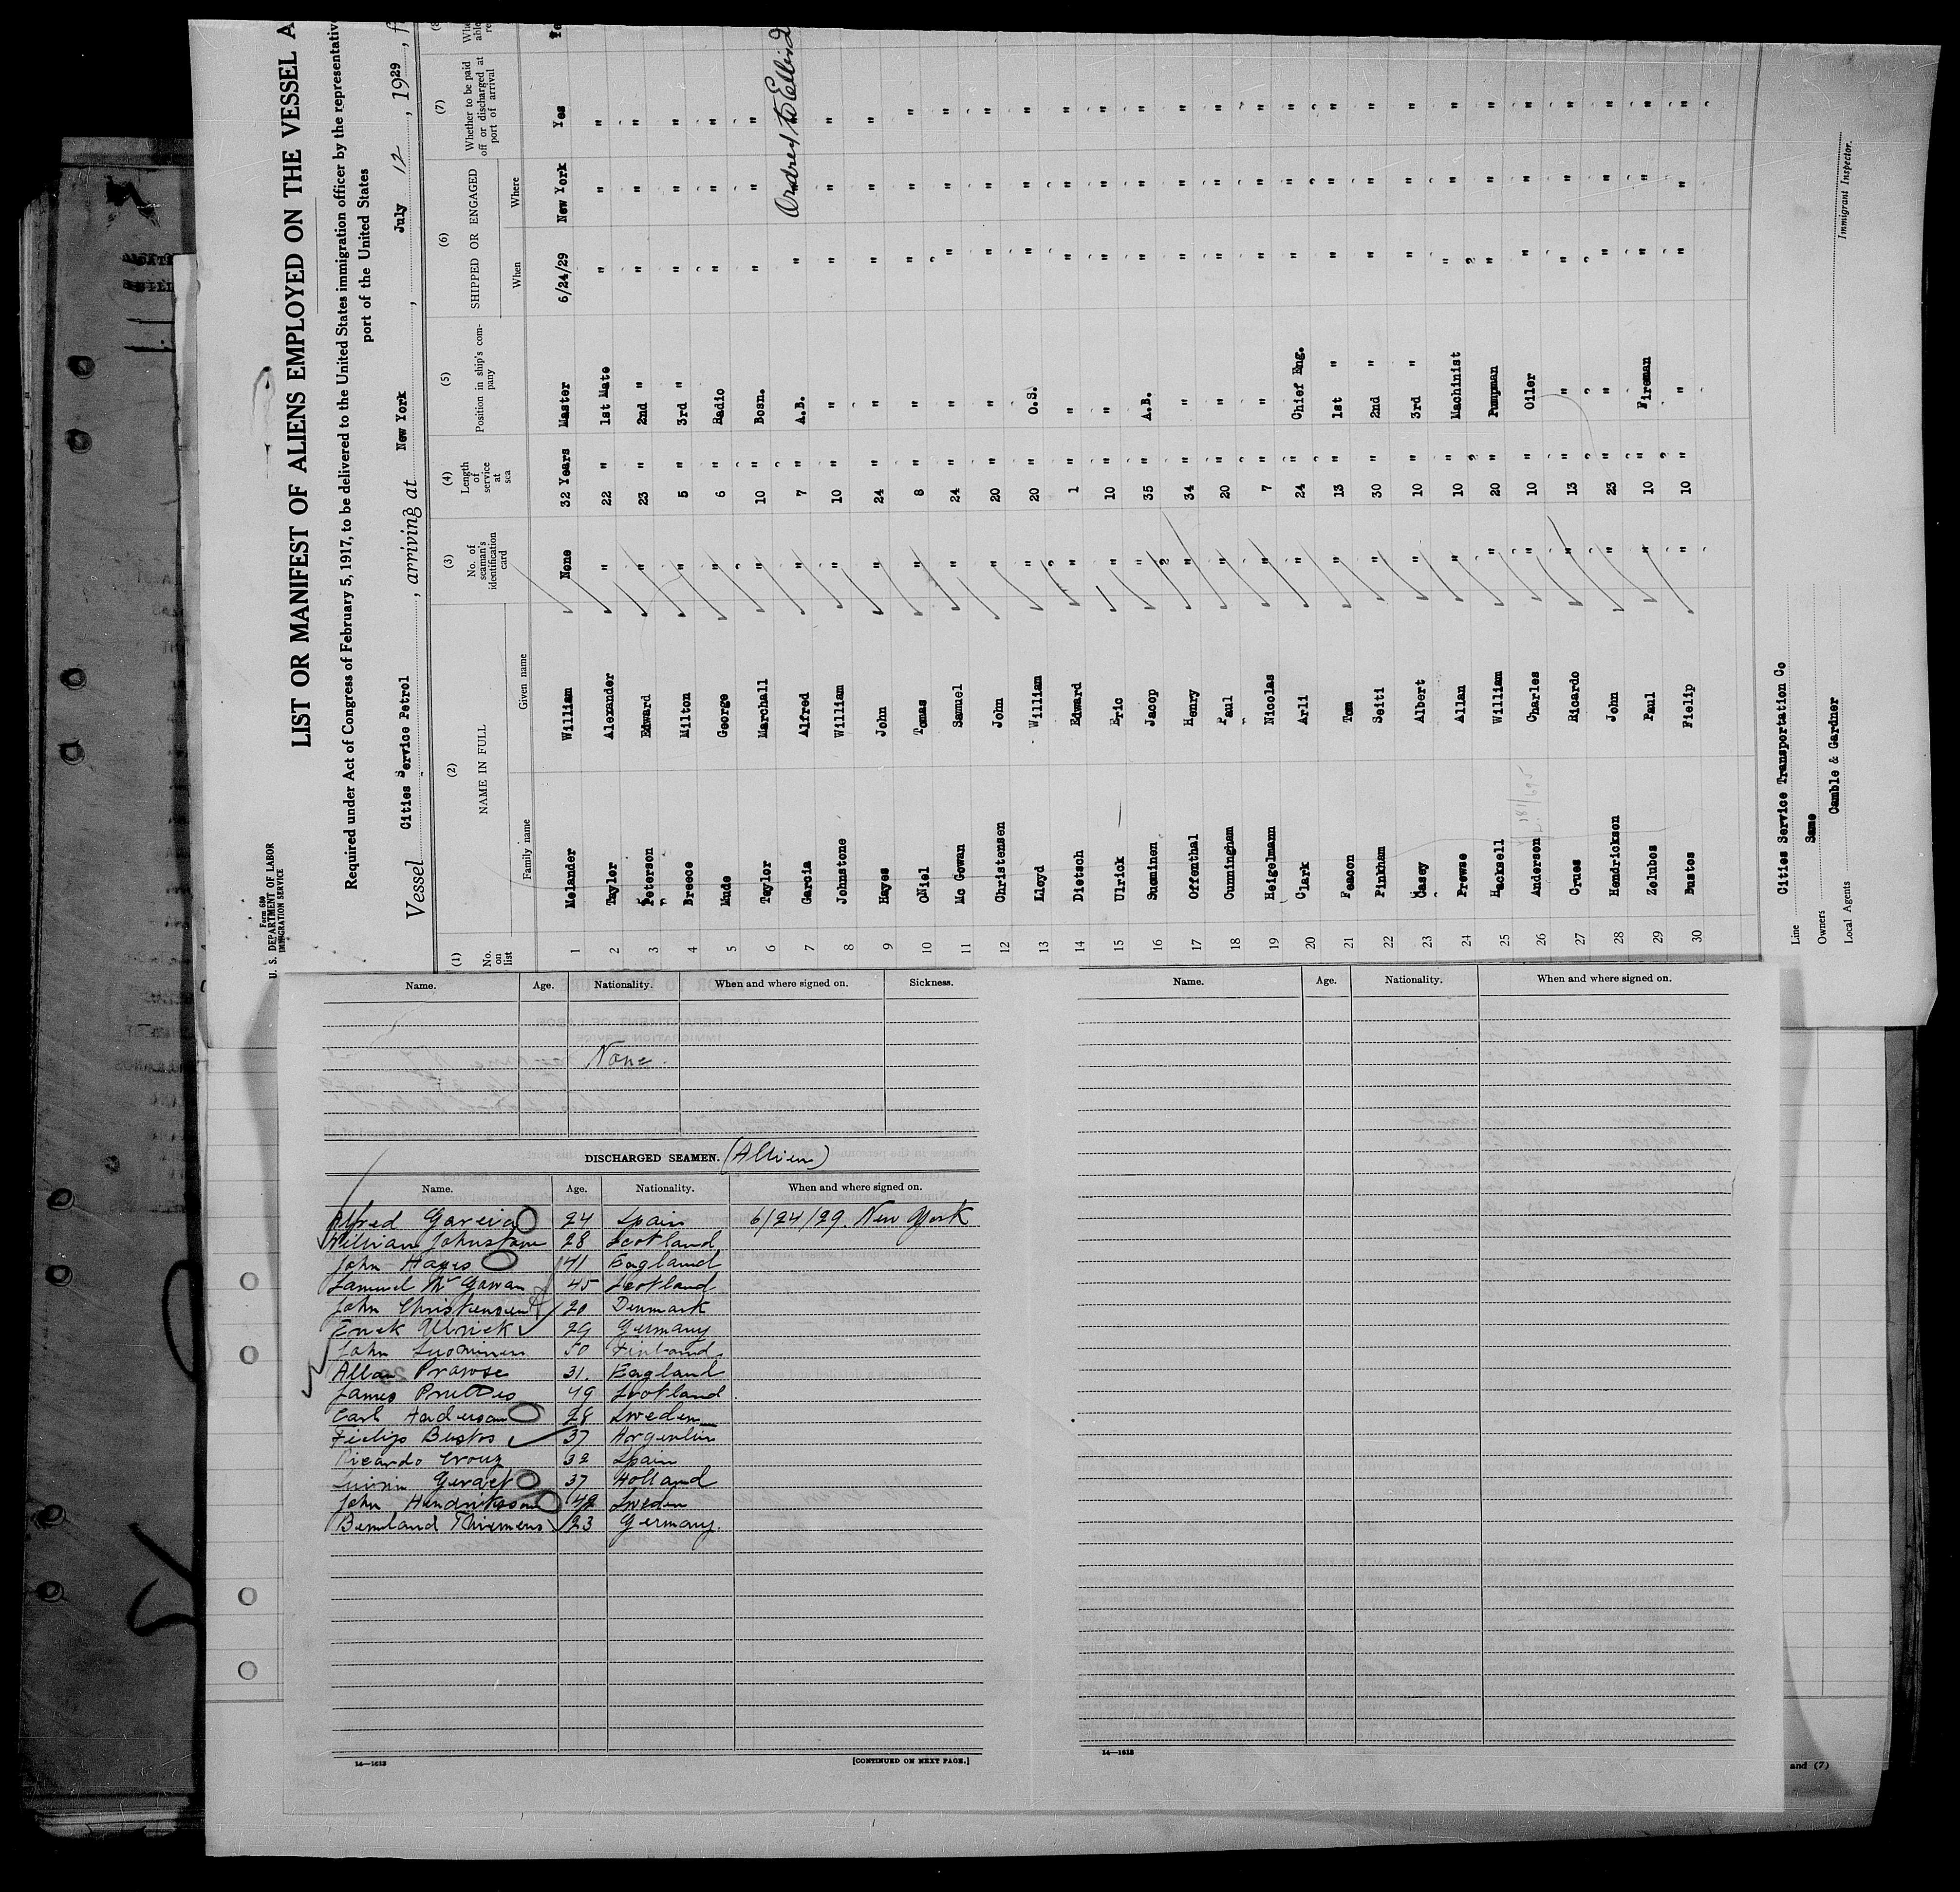 Form 680
U. S. DEPARTMENT OF LABOR
IMMIGRATION SERVICE
LIST OR MANIFEST OF ALIENS EMPLOYED ON THE VESSEL A
Required under Act of Congress of February 5, 1917, to be delivered to the United States immigration officer by the representativ
port of the United States
Vessel Cities Service Petrol , arriving at New York , July 12 , 1929, f
(1) (2) (3) (4) (5) (6) (7)
No. on list NAME IN FULL No. of seaman's identification card Length of service at sea Position in ship's company SHIPPED OR ENGAGED Whether to be paid off or discharged at port of arrival
Family name Given name When Where
1 Melander William None 32 Years Master 6/24/29 New York Yes Ye
2 Taylor Alexander " 22 " 1st Mate " " "
3 Peterson Edward " 23 " 2nd " " " "
4 Breece Milton " 5 " 3rd " " " "
5 Mude George " 6 " Radio " " "
6 Taylor Marchall " 10 " Bosn. " " "
7 Garcia Alfred " 7 " A.B. "
8 Johnstone William " 10 " " " " "
9 Hayes John " 24 " " " " "
10 ONiel Tomas " 8 " " " " "
11 Mc Gowan Samuel " 24 " " " " "
12 Christensen John " 20 " " " " "
13 Lloyd William " 20 " O.S. " " "
14 Dietsch Edward " 1 " " " " "
15 Ulrick Eric " 10 " " " " "
16 Suominen Jacop " 35 " A.B. " " "
17 Offenthal Henry " 34 " " " " "
18 Cunningham Paul " 20 " " " " "
19 Heigelmann Nicolas " 7 " " " " "
20 Clark Arli " 24 " Chief Eng. " " "
21 Peacon Tom " 13 " 1st " " " "
22 Pinkham Seiti " 30 " 2nd " " " "
23 Casey Albert " 10 " 3rd " " " "
24 Prewse Allan " 10 " Machinist " " "
25 Hacksell William " 20 " Pumpman " " "
26 Andersen Charles " 10 " Oiler " " "
27 Crues Ricardo " 13 " " " " "
28 Hendrickson John " 23 " " " " "
29 Zelubos Paul " 10 " Fireman " " "
30 Bustos Fielip " 10 " " " " "
Line Cities Service Transportation Co
Owners Same
Local Agents Camble & Gardner
Immigrant Inspector.
Name. Age. Nationality. When and where signed on. Sickness.
None.
DISCHARGED SEAMEN. (Allien)
Name. Age. Nationality. When and where signed on.
Alfred Garcia 24 Spain 6/24/29 New York
William Johnstone 28 Scotland
John Hayes 41 England
Samuel Mc Gowan 45 Scotland
John Christensen 20 Denmark
Erick Ulrick 29 Germany
John Suominen 50 Finland
Allan Prowse 31. England
James 49 Scotland
Carl Anderson 28 Sweden
Fielip Bustos 37 Argentin
Ricardo Crouz 32 Spain
37 Holland
John Hendrikson 42 Sweden
23 Germany.
14—1613
[CONTINUED ON NEXT PAGE.]
Name. Age. Nationality. When and where signed on.
14—1613
and (7)